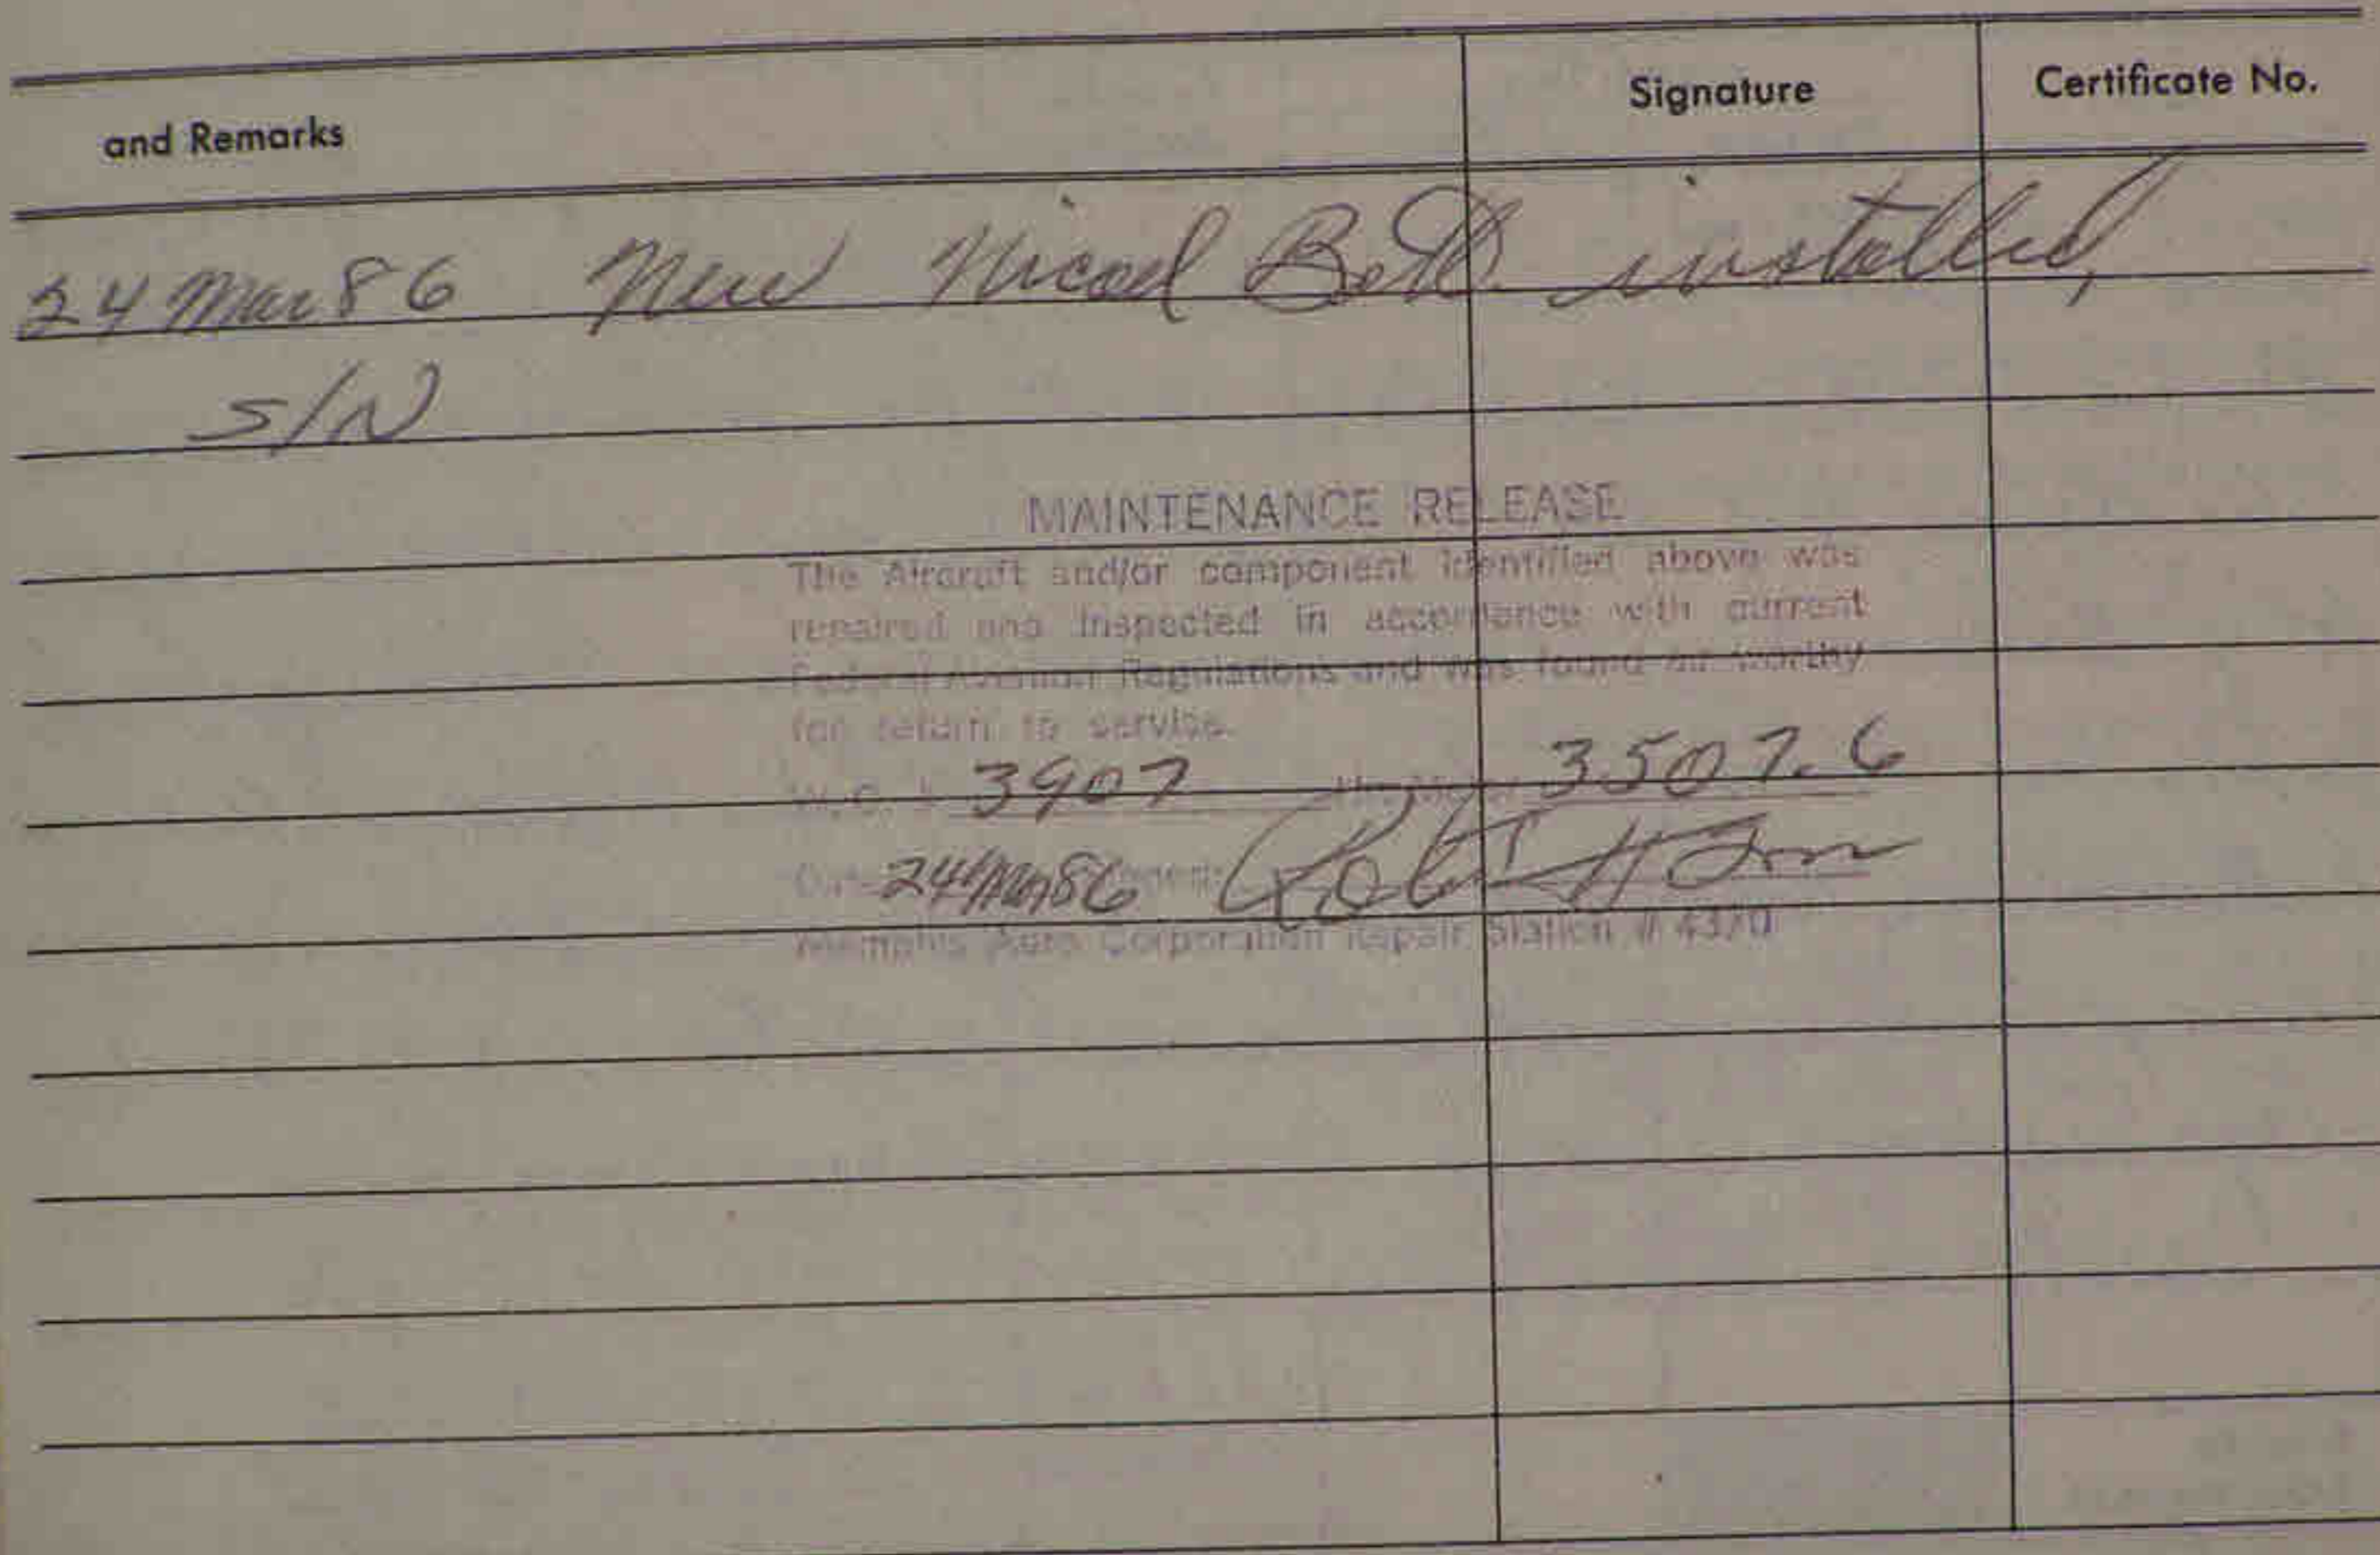 and Remarks Signature Certificate No.
24 Mar 86 New Nicad Batt. installed,
S/N
MAINTENANCE RELEASE
The Aircraft and/or component identified above was
repaired and inspected in accordance with current
Federal Aviation Regulations and was found air worthy
for return to service.
W.O. # 3907 3507.6
Date 24 Mar 86
Memphis Aero Corporation Repair Station # 4370